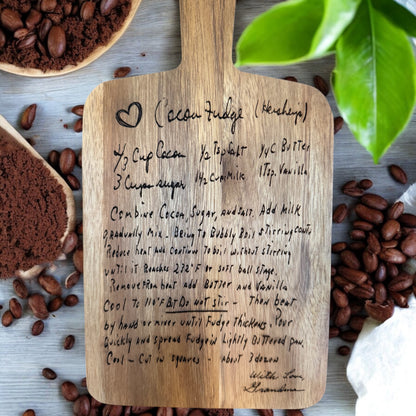 Cocoa Fudge (Hersheys)
2/3 Cup Cocoa 1/2 Tsp Salt 1/4 C Butter
3 Cups sugar 1 1/2 Cup Milk 1 Tsp. Vanilla
Combine Cocoa, Sugar, and Salt. Add Milk
gradually mix. Bring to Bubbly Boil stirring
Reduce heat and continue to boil without stirring
until it Reaches 232°F or soft ball stage.
Remove from heat add Butter and Vanilla
Cool to 110°F But Do not stir - Then beat
by hand or mixer until Fudge Thickens. Pour
Quickly and spread Fudge in Lightly Buttered pan.
Cool - Cut in squares - about 3 dozen
With Love
Grandma